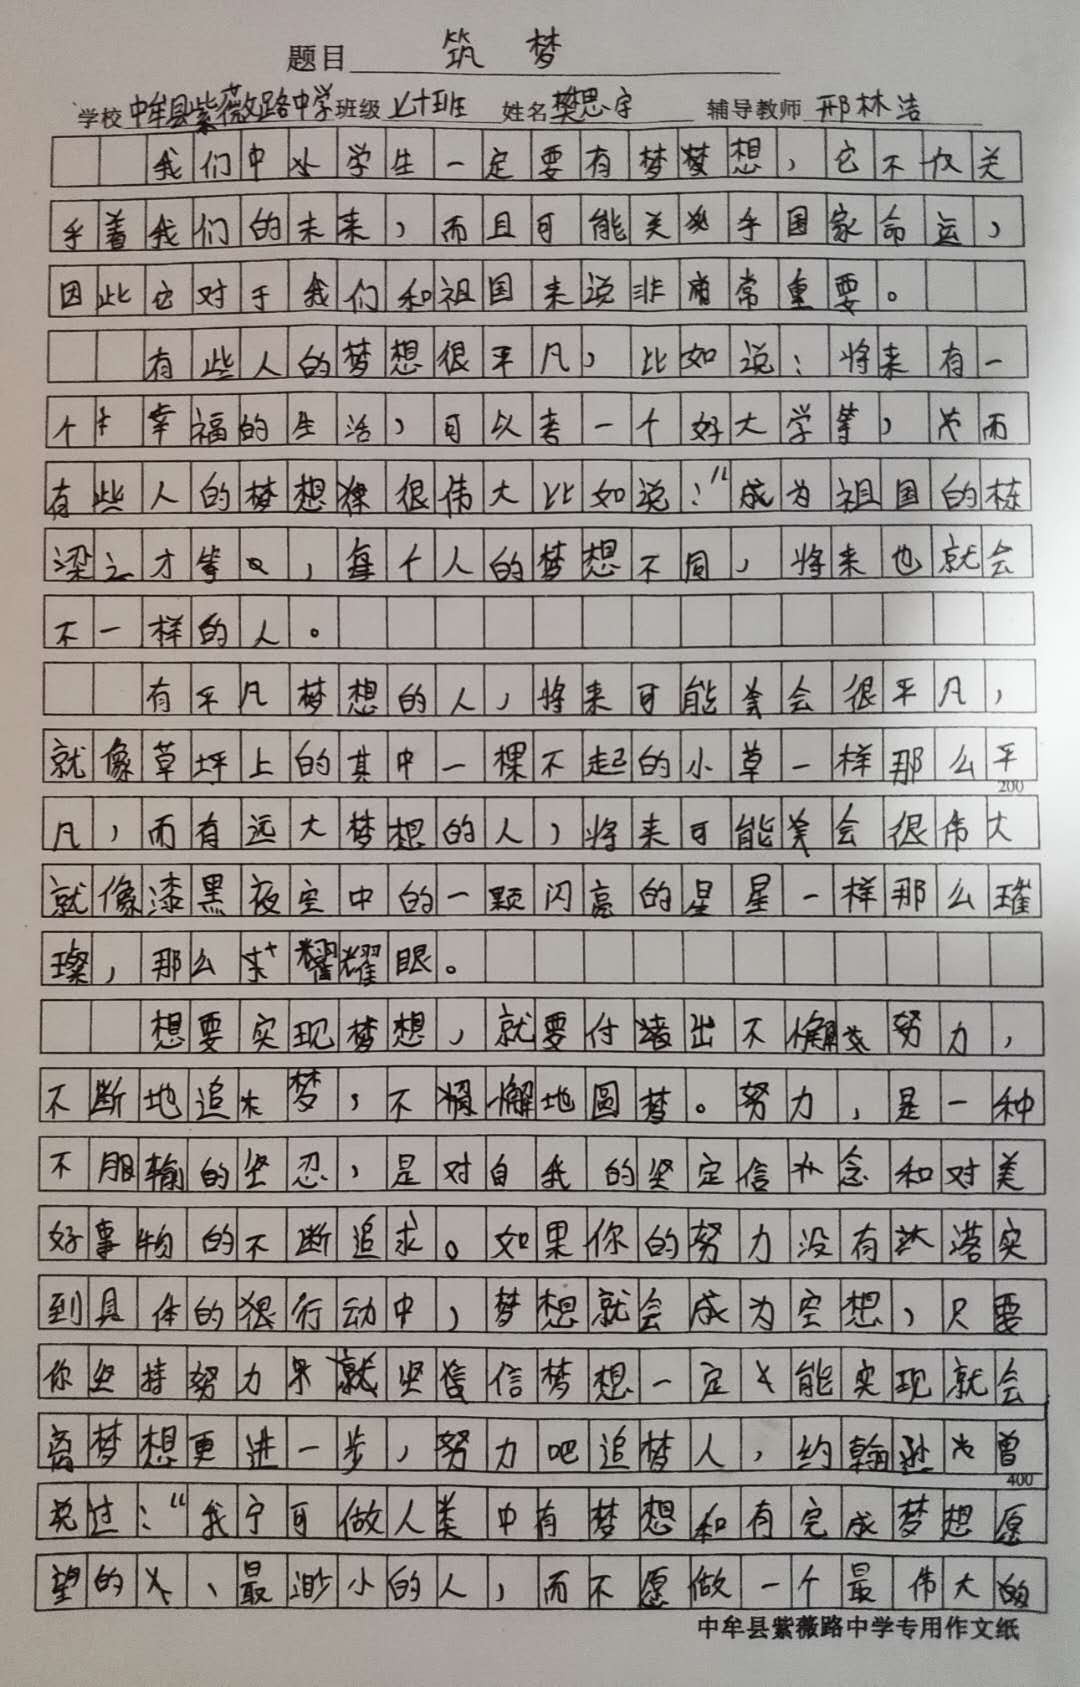 题目 筑梦
学校 中牟县紫薇路中学 班级 七十班 姓名 樊思宇 辅导教师 邢林洁
我们中小学生一定要有梦梦想，它不仅关
乎着我们的未来，而且可能关乎国家命运，
因此它对于我们和祖国来说非常重要。
有些人的梦想很平凡，比如说：将来有一
个幸福的生活，可以考一个好大学等，而
有些人的梦想很伟大比如说：“成为祖国的栋
梁之才等，每个人的梦想不同，将来也就会
不一样的人。
有平凡梦想的人，将来可能会很平凡，
就像草坪上的其中一棵不起的小草一样那么平
200
凡，而有远大梦想的人，将来可能会很伟大
就像漆黑夜空中的一颗闪亮的星星一样那么璀
璨，那么耀眼。
想要实现梦想，就要付出不懈努力，
不断地追梦，不懈地圆梦。努力，是一种
不服输的坚忍，是对自我的坚定信念和对美
好事物的不断追求。如果你的努力没有落实
到具体的行动中，梦想就会成为空想，只要
你坚持努力就坚信梦想一定能实现就会
离梦想更进一步，努力吧追梦人，约翰逊曾
400
说过：“我宁可做人类中有梦想和有完成梦想愿
望的、最渺小的人，而不愿做一个最伟大的
中牟县紫薇路中学专用作文纸